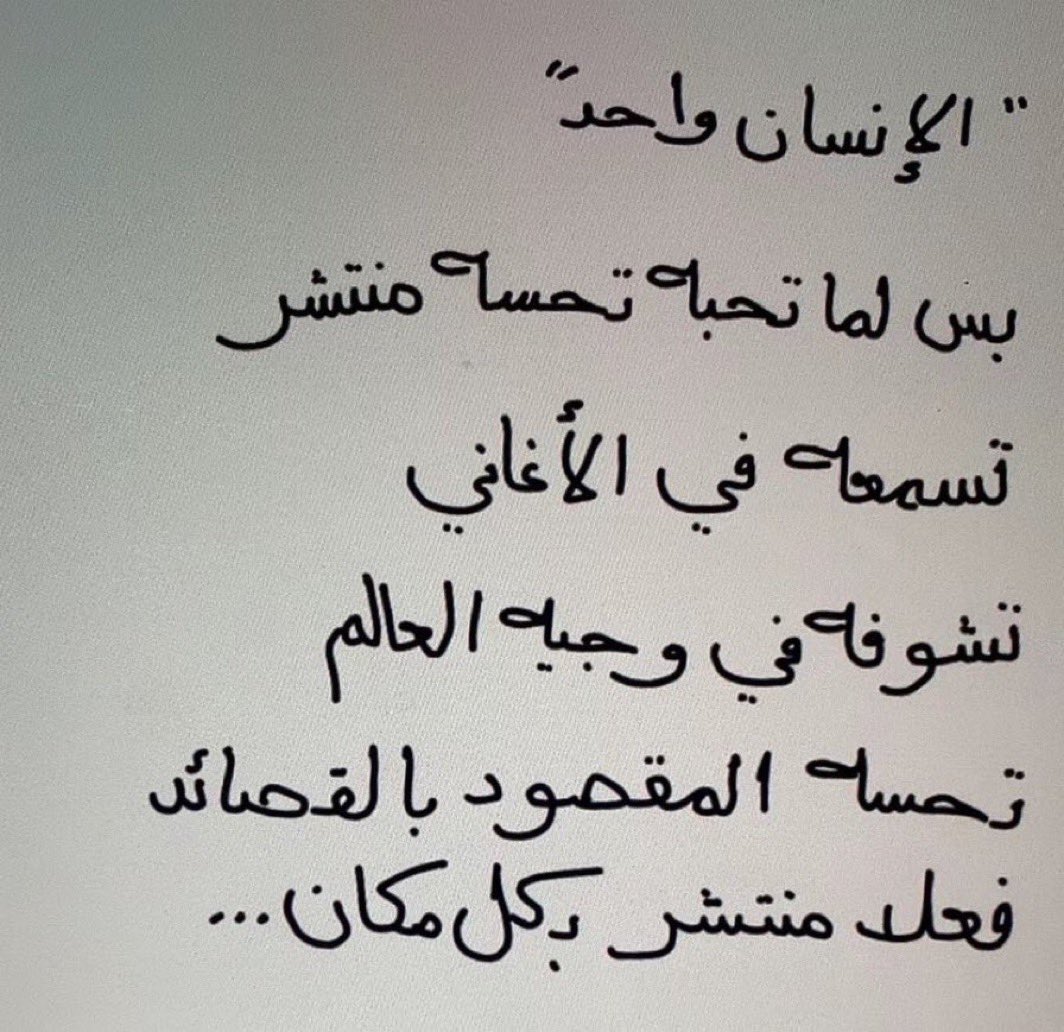 "الإنسان واحد"
بس لما تحبه تحسه منتشر
تسمعه في الأغاني
تشوفه في وجيه العالم
تحسه المقصود بالقصائد
فعلا منتشر بكل مكان...